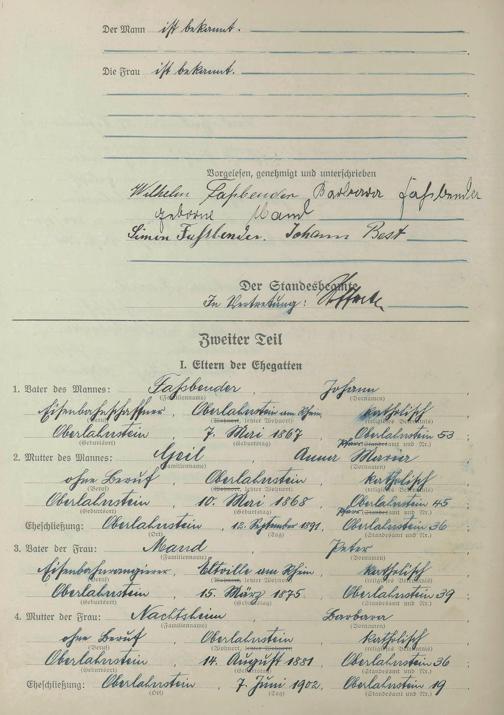 Der Mann ist bekannt.
Die Frau ist bekannt.
Vorgelesen, genehmigt und unterschrieben
Wilhelm Faßbender Barbara Faßbender
geborene Mand
Simon Faßbender. Johann Best
Der Standesbeamte
In Vertretung:
Zweiter Teil
I. Eltern der Ehegatten
1. Vater des Mannes: Faßbender, Johann
(Familienname) (Vornamen)
Eisenbahnschaffner, Oberlahnstein am Rhein, katholisch
(Beruf) (Wohnort, letzter Wohnort) (religiöses Bekenntnis)
Oberlahnstein, 7. Mai 1867, Oberlahnstein 53
(Geburtsort) (Geburtstag) (Standesamt und Nr.)
2. Mutter des Mannes: Geil Anna Maria
(Familienname) (Vornamen)
ohne Beruf, Oberlahnstein, katholisch
(Beruf) (Wohnort, letzter Wohnort) (religiöses Bekenntnis)
Oberlahnstein, 10. Mai 1868, Oberlahnstein 45
(Geburtsort) (Geburtstag) (Standesamt und Nr.)
Eheschließung: Oberlahnstein, 12. September 1891, Oberlahnstein 36
(Ort) (Tag) (Standesamt und Nr.)
3. Vater der Frau: Mand, Peter
(Familienname) (Vornamen)
Eisenbahnrangierer, Eltville am Rhein, katholisch
(Beruf) (Wohnort, letzter Wohnort) (religiöses Bekenntnis)
Oberlahnstein, 15. März 1875, Oberlahnstein 39
(Geburtsort) (Geburtstag) (Standesamt und Nr.)
4. Mutter der Frau: Nachtsheim, Barbara
(Familienname) (Vornamen)
ohne Beruf, Oberlahnstein, katholisch
(Beruf) (Wohnort, letzter Wohnort) (religiöses Bekenntnis)
Oberlahnstein, 14. August 1881, Oberlahnstein 36
(Geburtsort) (Geburtstag) (Standesamt und Nr.)
Eheschließung: Oberlahnstein, 7. Juni 1902, Oberlahnstein 19
(Ort) (Tag) (Standesamt und Nr.)